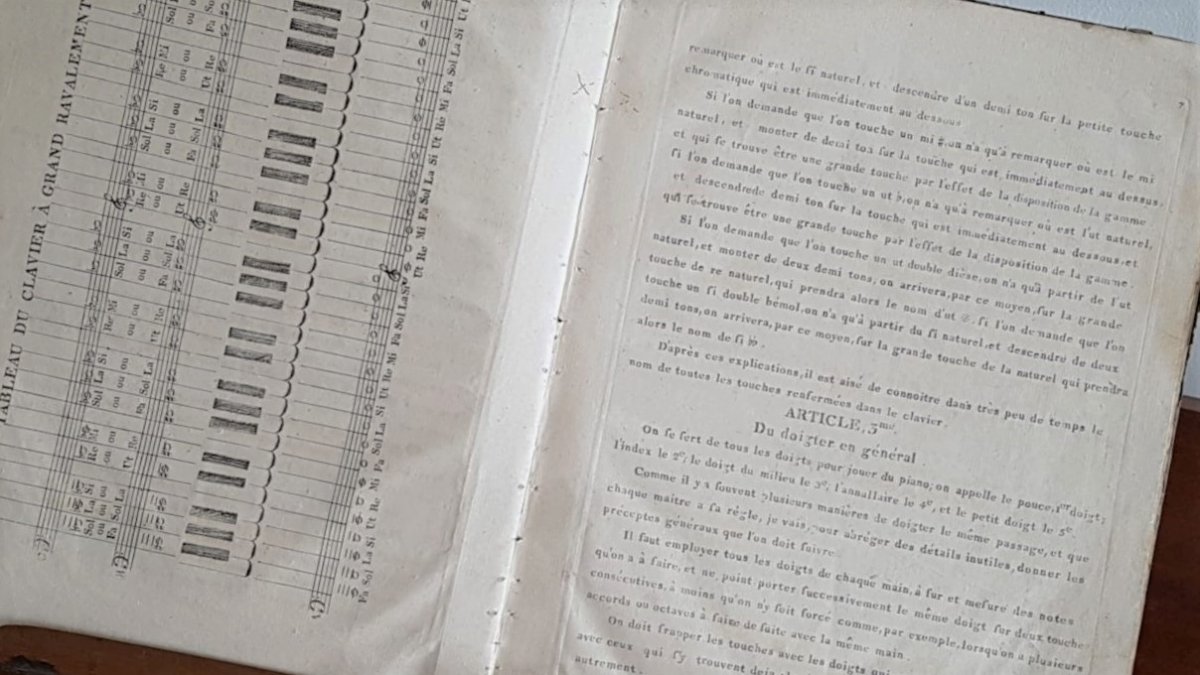 TABLEAU DU CLAVIER À GRAND RAVALEMENT
Fa Sol La Si Ut Re Mi Fa Sol La Si Ut Re Mi Fa Sol La Si Ut Re Mi Fa Sol La Si Ut Re Mi Fa Sol La Si Ut Re Mi Fa Sol La Si Ut
7
remarquer où est le si naturel, et descendre d'un demi ton sur la petite touche
chromatique qui est immédiatement au dessous
Si l'on demande que l'on touche un mi #, on n'a qu'à remarquer où est le mi
naturel, et monter de demi ton sur la touche qui est immédiatement au dessus,
et qui se trouve être une grande touche par l'effet de la disposition de la gamme
si l'on demande que l'on touche un ut ♭, on n'a qu'à remarquer où est l'ut naturel,
et descendre de demi ton sur la touche qui est immédiatement au dessous, et
qui se trouve être une grande touche par l'effet de la disposition de la gamme.
Si l'on demande que l'on touche un ut double dièse, on n'a qu'à partir de l'ut
naturel, et monter de deux demi tons, on arrivera, par ce moyen, sur la grande
touche de re naturel, qui prendra alors le nom d'ut 𝄪. si l'on demande que l'on
touche un si double bémol, on n'a qu'à partir du si naturel, et descendre de deux
demi tons, on arrivera, par ce moyen, sur la grande touche de la naturel qui prendra
alors le nom de si ♭♭.
D'après ces explications, il est aisé de connoitre dans très peu de temps le
nom de toutes les touches renfermées dans le clavier.
ARTICLE, 3me.
Du doigter en général
On se sert de tous les doigts pour jouer du piano; on appelle le pouce, 1er doigt;
l'index le 2e; le doigt du milieu le 3e; l'annallaire le 4e, et le petit doigt le 5e.
Comme il y a souvent plusieurs manières de doigter le même passage, et que
chaque maitre a sa régle, je vais, pour abréger des détails inutiles, donner les
préceptes généraux que l'on doit suivre.
Il faut employer tous les doigts de chaque main, à fur et mesure des notes
qu'on a à faire, et ne point porter successivement le même doigt sur deux touches
consécutives, à moins qu'on n'y soit forcé comme, par exemple, lorsqu'on a plusieurs
accords ou octaves à faire de suite avec la même main.
On doit frapper les touches avec les doigts
avec ceux qui s'y trouvent deja
autrement.